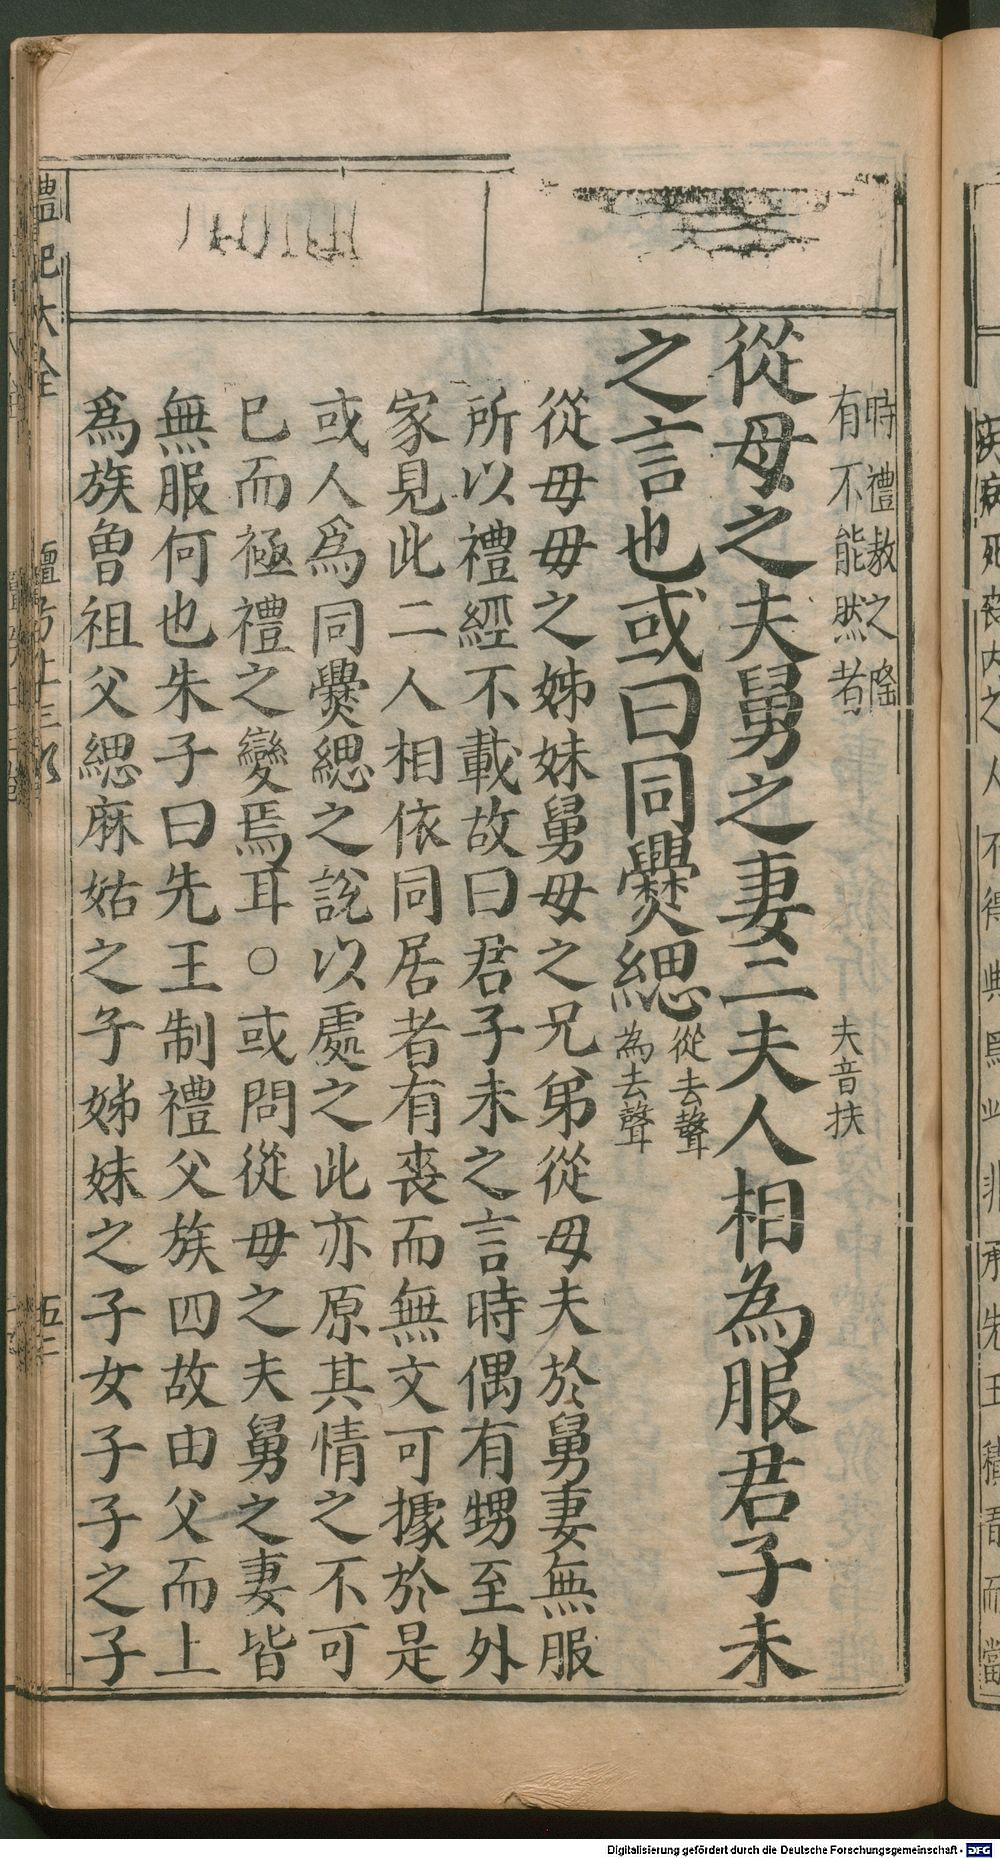 時禮教之隆
有不能然者 夫音扶
從母之夫舅之妻二夫人相為服君子未
之言也或曰同爨緦 從去聲
為去聲
從母母之姊妹舅母之兄弟從母夫於舅妻無服
所以禮經不載故曰君子未之言時偶有甥至外
家見此二人相依同居者有喪而無文可據於是
或人爲同爨緦之說以處之此亦原其情之不可
已而極禮之變焉耳○或問從母之夫舅之妻皆
無服何也朱子曰先王制禮父族四故由父而上
爲族曾祖父緦麻姑之子姊妹之子女子子之子
禮記大全
Digitalisierung gefördert durch die Deutsche Forschungsgemeinschaft - DFG